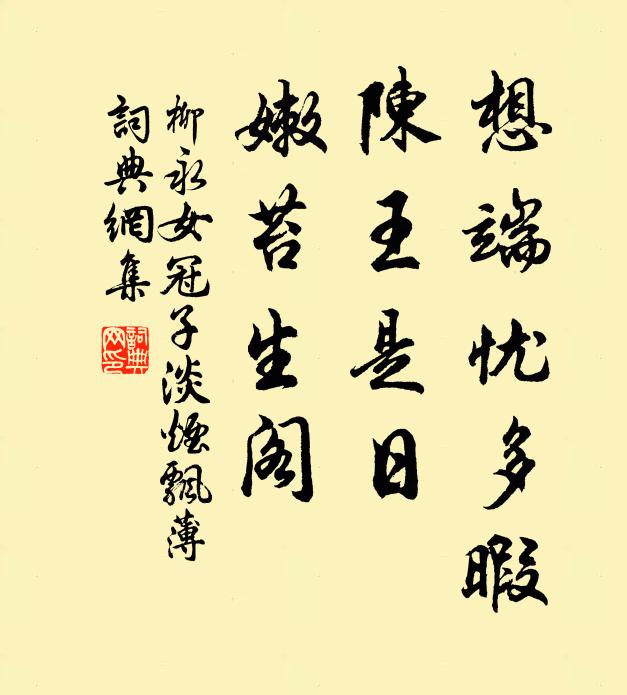 想端忧多暇
陳王是日
嫩苔生阁
柳永女冠子淡煙飄薄
詞典網集
詞典网印